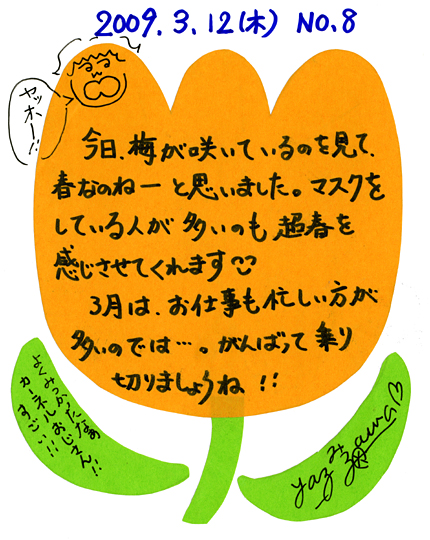 2009.3.12(木) NO.8
ヤッホー!!
今日、梅が咲いているのを見て、
春なのねーと思いました。マスクを
している人が多いのも超春を
感じさせてくれます
3月は、お仕事も忙しい方が
多いのでは…。がんばって乗り
切りましょうね!!
よくみつかったなぁ
カーネルおじさん!!
すごい!!